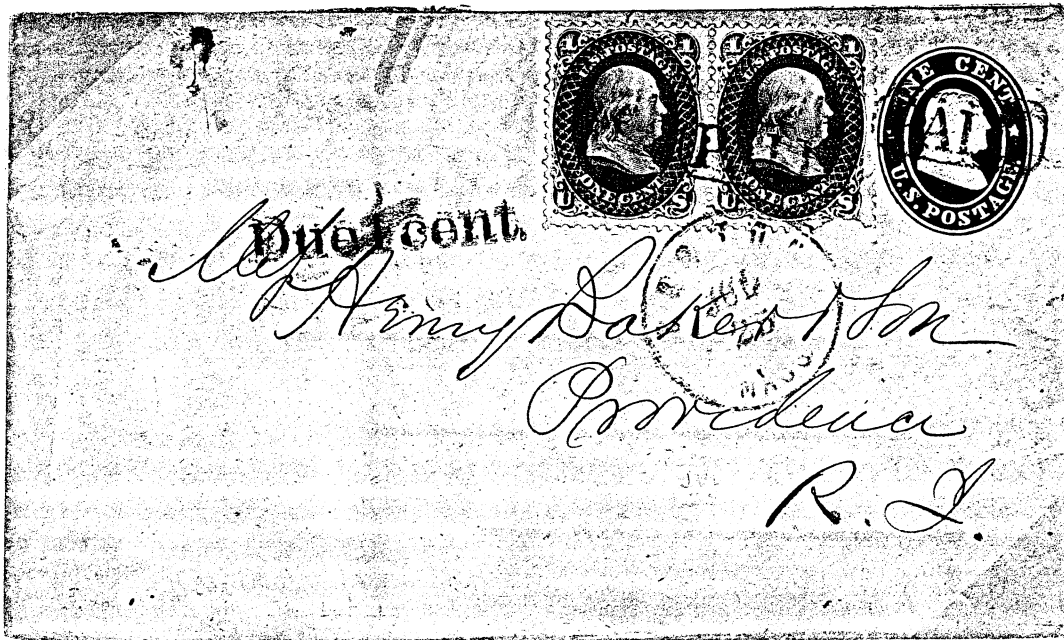 1 U.S. POSTAGE 1
ONE CENT
U S
1 U.S. POSTAGE 1
ONE CENT
U S
ONE CENT
U.S. POSTAGE.
Due 1 cent.
BOSTON
JUL
MASS
Henry Baker & Son
Providence
R. I.